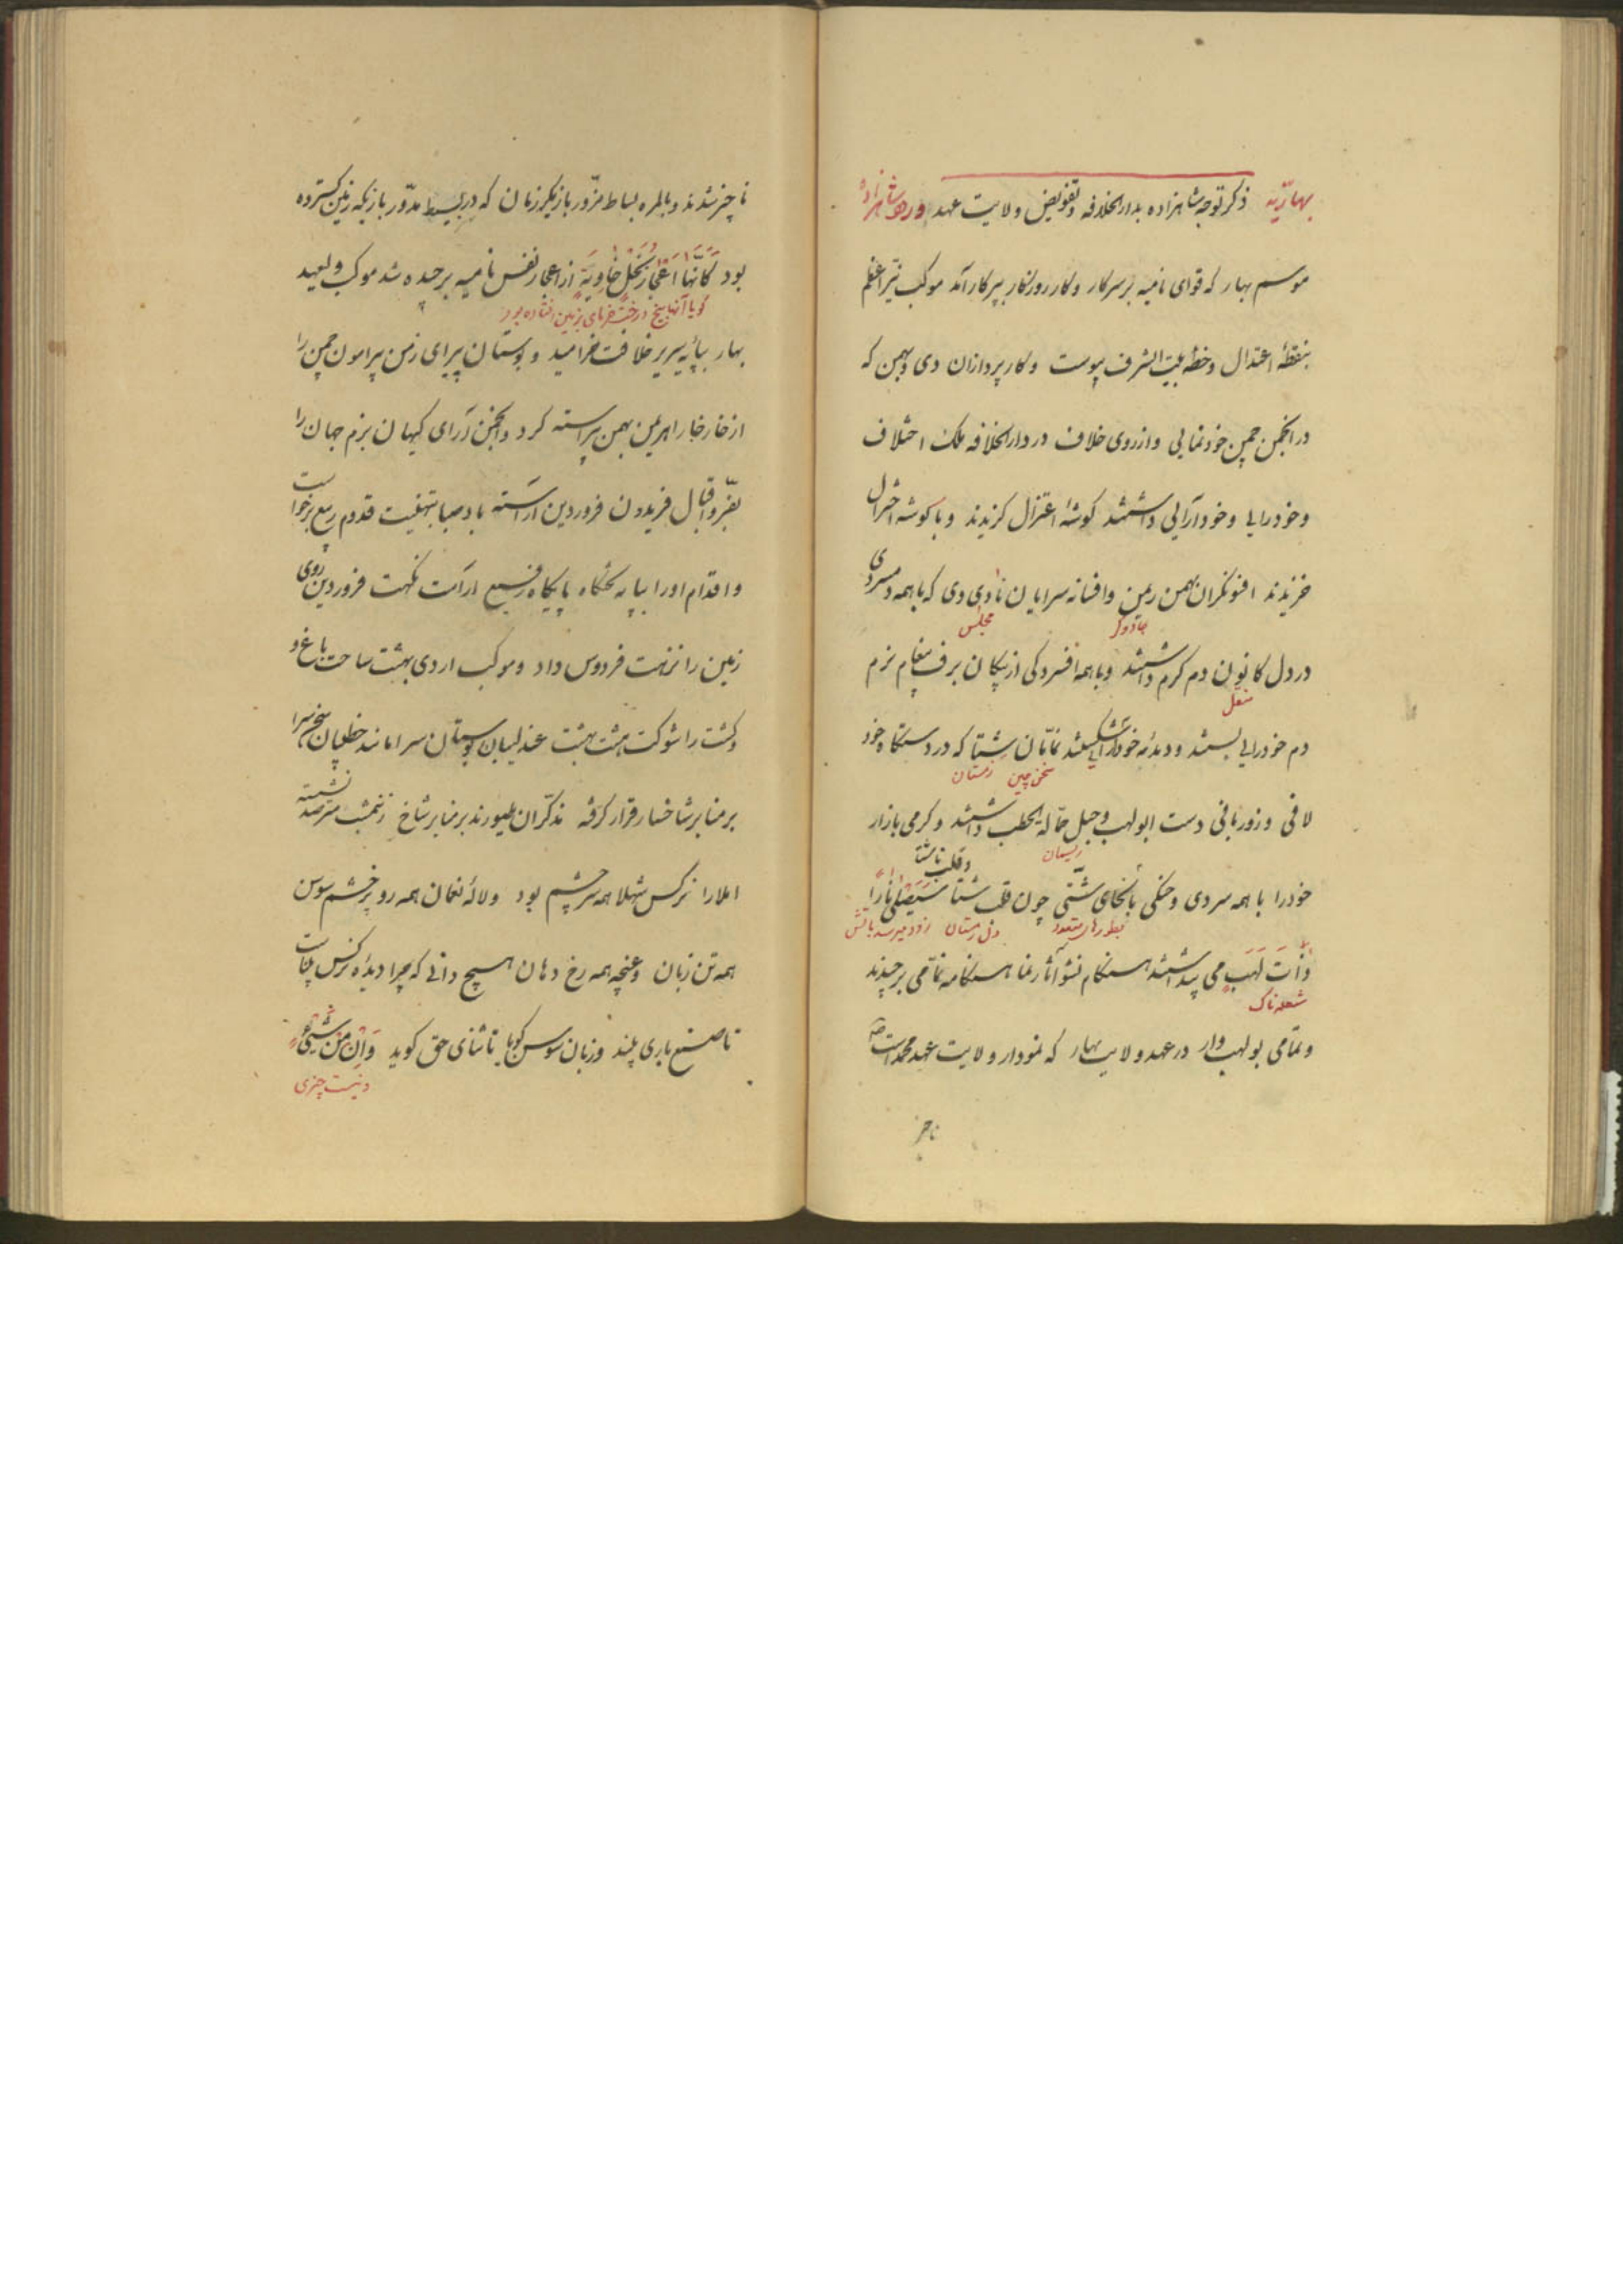 بهاریّه ذکر توجه شاهزاده بدارالخلافه و تفویض ولایت عهد در شاهزاده
موسم بهار که قوای نامیه بر سر کار و کار روزگار بپرکار آمد موکب نیّر اعظم
بنقطهٔ اعتدال و خطهٔ بیت الشرف پیوست و کارپردازان دی و بهمن که
در انجمن چمن خودنمایی و از روی خلاف در دارالخلافه ملک اختلاف
و خودرایی و خودآرایی داشتند گوشهٔ اعتزال گزیدند و با گوشه اختزال
خزیدند افسونگران بهمن ریمن و افسانه سرایان نادی دی که با همه دمسردی
جادوگر مجلس
در دل کانون دم گرم داشتند و با همه افسردگی از پیکان برف پیغام نرم
منقل
دم خودرایی بستند و دبدبه خودآرایی شکستند نمّامان شتا که در دستگاه خود
سخن چین زمستان
لافی و زوربانی دست ابولهب و حبل حمّاله الحطب داشتند و گرمی بازار
ریسمان
خود را با همه سردی و خنکی بانحای شتّی چون قلب شتا سَیَصْلی ناراً
و قلب شتا
بطورهای متعدد دل زمستان زود میرسد بآتش
ذاتَ لَهَبٍ می پنداشتند هنگام نشو آثار نما هنگامه نمّامی برچیدند
شعله ناک
و نمّامی بولهب وار در عهد ولایت بهار که نمودار ولایت عهد محمد است
ناچیز
ناچیز شدند و بالمره بساط مزّور بازیگر زمان که در بسیط مدّور بازیگه زمین گسترده
بود کَاَنَّها اَعْجازُ نَخْلٍ خاوِیَةٍ از اعجاز نفس نامیه برچیده شد موکب ولیعهد
گویا آنها بیخ درخت خرمای بزمین افتاده بود
بهار بپایهٔ سریر خلافت خرامید و بوستان پیرای زمن پیرامون چمن را
از خار خار اهریمن بهمن پیراسته کرد و انجمن آرای کیهان بزم جهان را
بفرّ و اقبال فریدون فروردین آراسته باد صبا بتهنیت قدوم ربیع برخواست
و اقدام او را بپایه تختگاه پایگاه رفیع آراست نکهت فروردین روی
زمین را نزهت فردوس داد و موکب اردی بهشت ساحت باغ و
دشت را شوکت هشت بهشت عندلیبان بوستان سرا مانند خطیبان سخن سرا
بر منابر شاخسار قرار گرفته مذکّران طیورند بر منابر شاخ نشسته مترصد
املا را نرگس شهلا همه سر چشم بود و لالهٔ نعمان همه رو پر خشم سوسن
همه تن زبان و غنچه همه رخ دهان هیچ دانی که چرا دیدهٔ نرگس بیناست
تا صنع باری بیند و زبان سوسن گویا تا ثنای حق گوید وَاِنْ مِنْ شَیْءٍ
و نیست چیزی